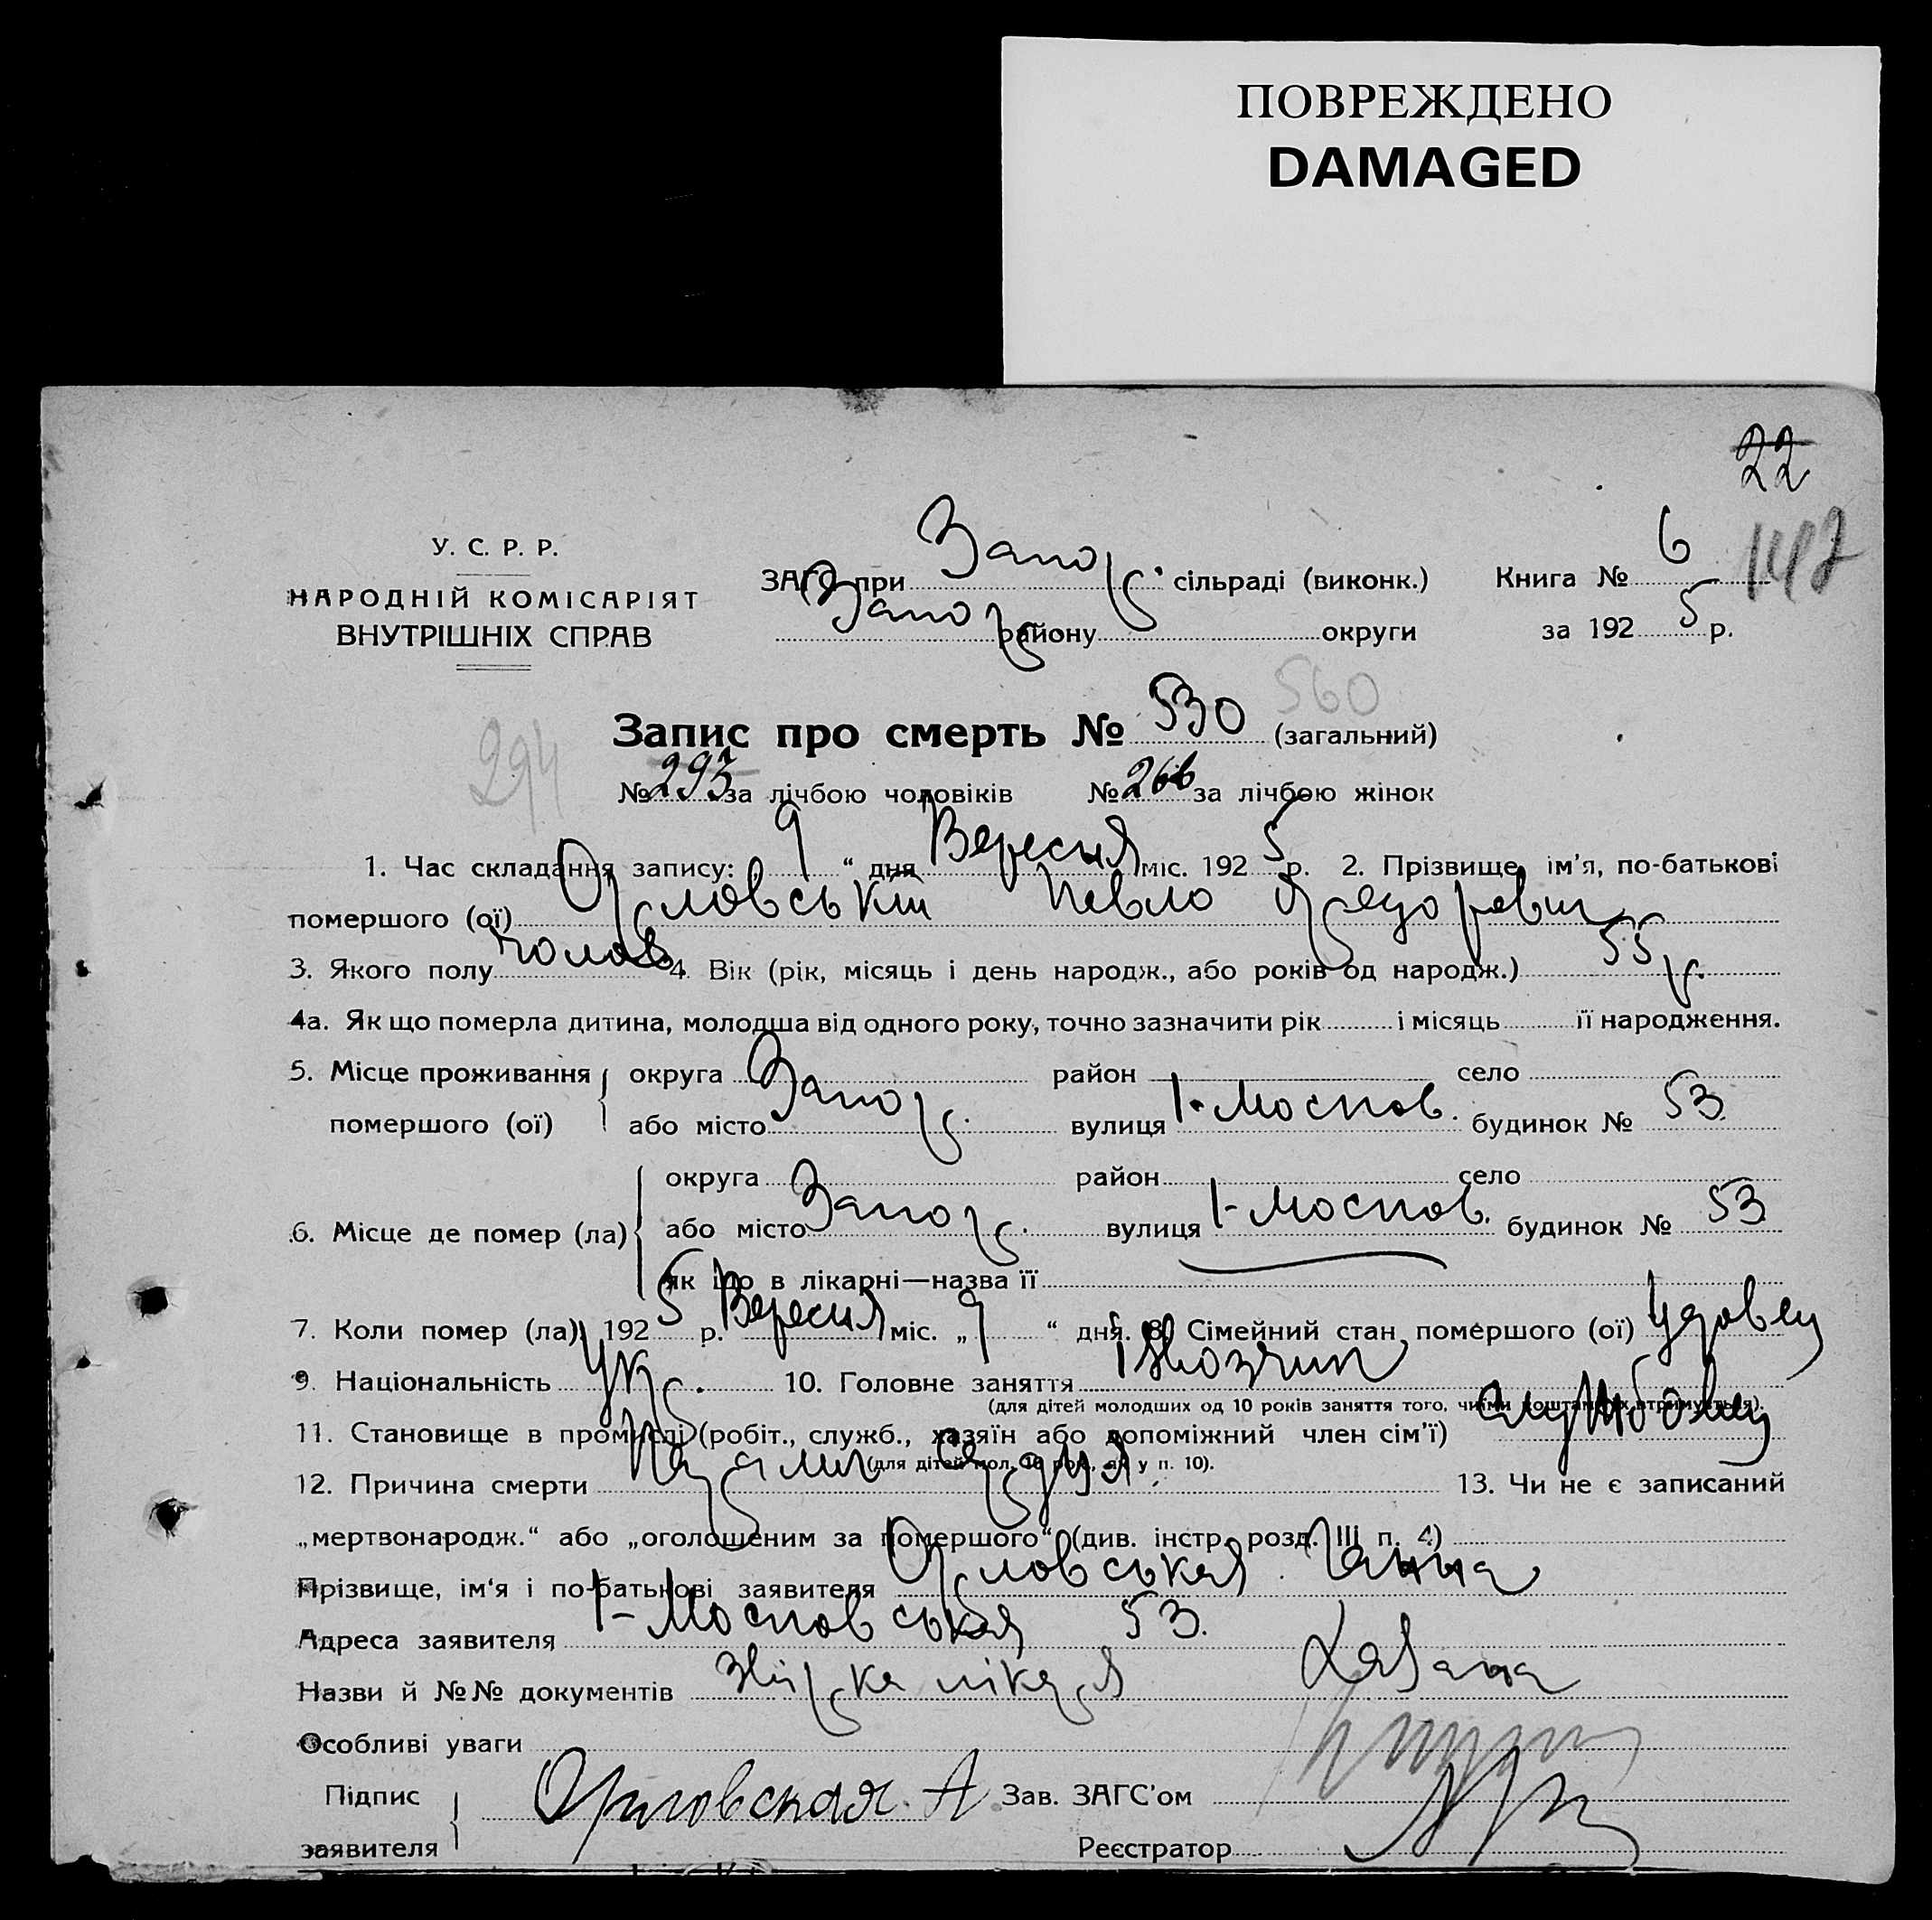 ПОВРЕЖДЕНО
DAMAGED
22
У. С. Р. Р.
НАРОДНІЙ КОМІСАРІЯТ
ВНУТРІШНІХ СПРАВ
ЗАГС при Запор. сільраді (виконк.) Книга № 6 147
Запор району округи за 192 5 р.
Запис про смерть № 530 560 (загальний)
294
№ 293 за лічбою чоловіків № 266 за лічбою жінок
1. Час складання запису: „ 9 “ дня Вересня міс. 192 5 р. 2. Прізвище, ім'я, по-батькові
помершого (ої) Орловський Павло Федорович
3. Якого полу чолов 4. Вік (рік, місяць і день народж., або років од народж.) 55 р.
4а. Як що померла дитина, молодша від одного року, точно зазначити рік і місяць її народження.
5. Місце проживання помершого (ої) округа район село
або місто Запор. вулиця 1-Москов. будинок № 53
6. Місце де помер (ла) округа район село
або місто Запор. вулиця 1-Москов. будинок № 53
як що в лікарні—назва її
7. Коли помер (ла) 192 5 р. Вересня міс. „ 9 “ дня. 8. Сімейний стан помершого (ої) Удовец
9. Національність Укр. 10. Головне заняття Ізвозчик
(для дітей молодших од 10 років заняття того, чиїми коштами їх втримується).
11. Становище в промислі (робіт., служб., хазяїн або допоміжний член сім'ї)
(для дітей мол. 10 рок., як у п. 10).
12. Причина смерти Параліч серця. 13. Чи не є записаний
„мертвонародж.“ або „оголошеним за помершого“ (див. інстр. розд. III п. 4)
Прізвище, ім'я і по-батькові заявителя Орловськая Ганна
Адреса заявителя 1-Московськая 53.
Назви й №№ документів лікаря
Особливі уваги
Підпис заявителя Орловская А Зав. ЗАГС'ом
Реєстратор